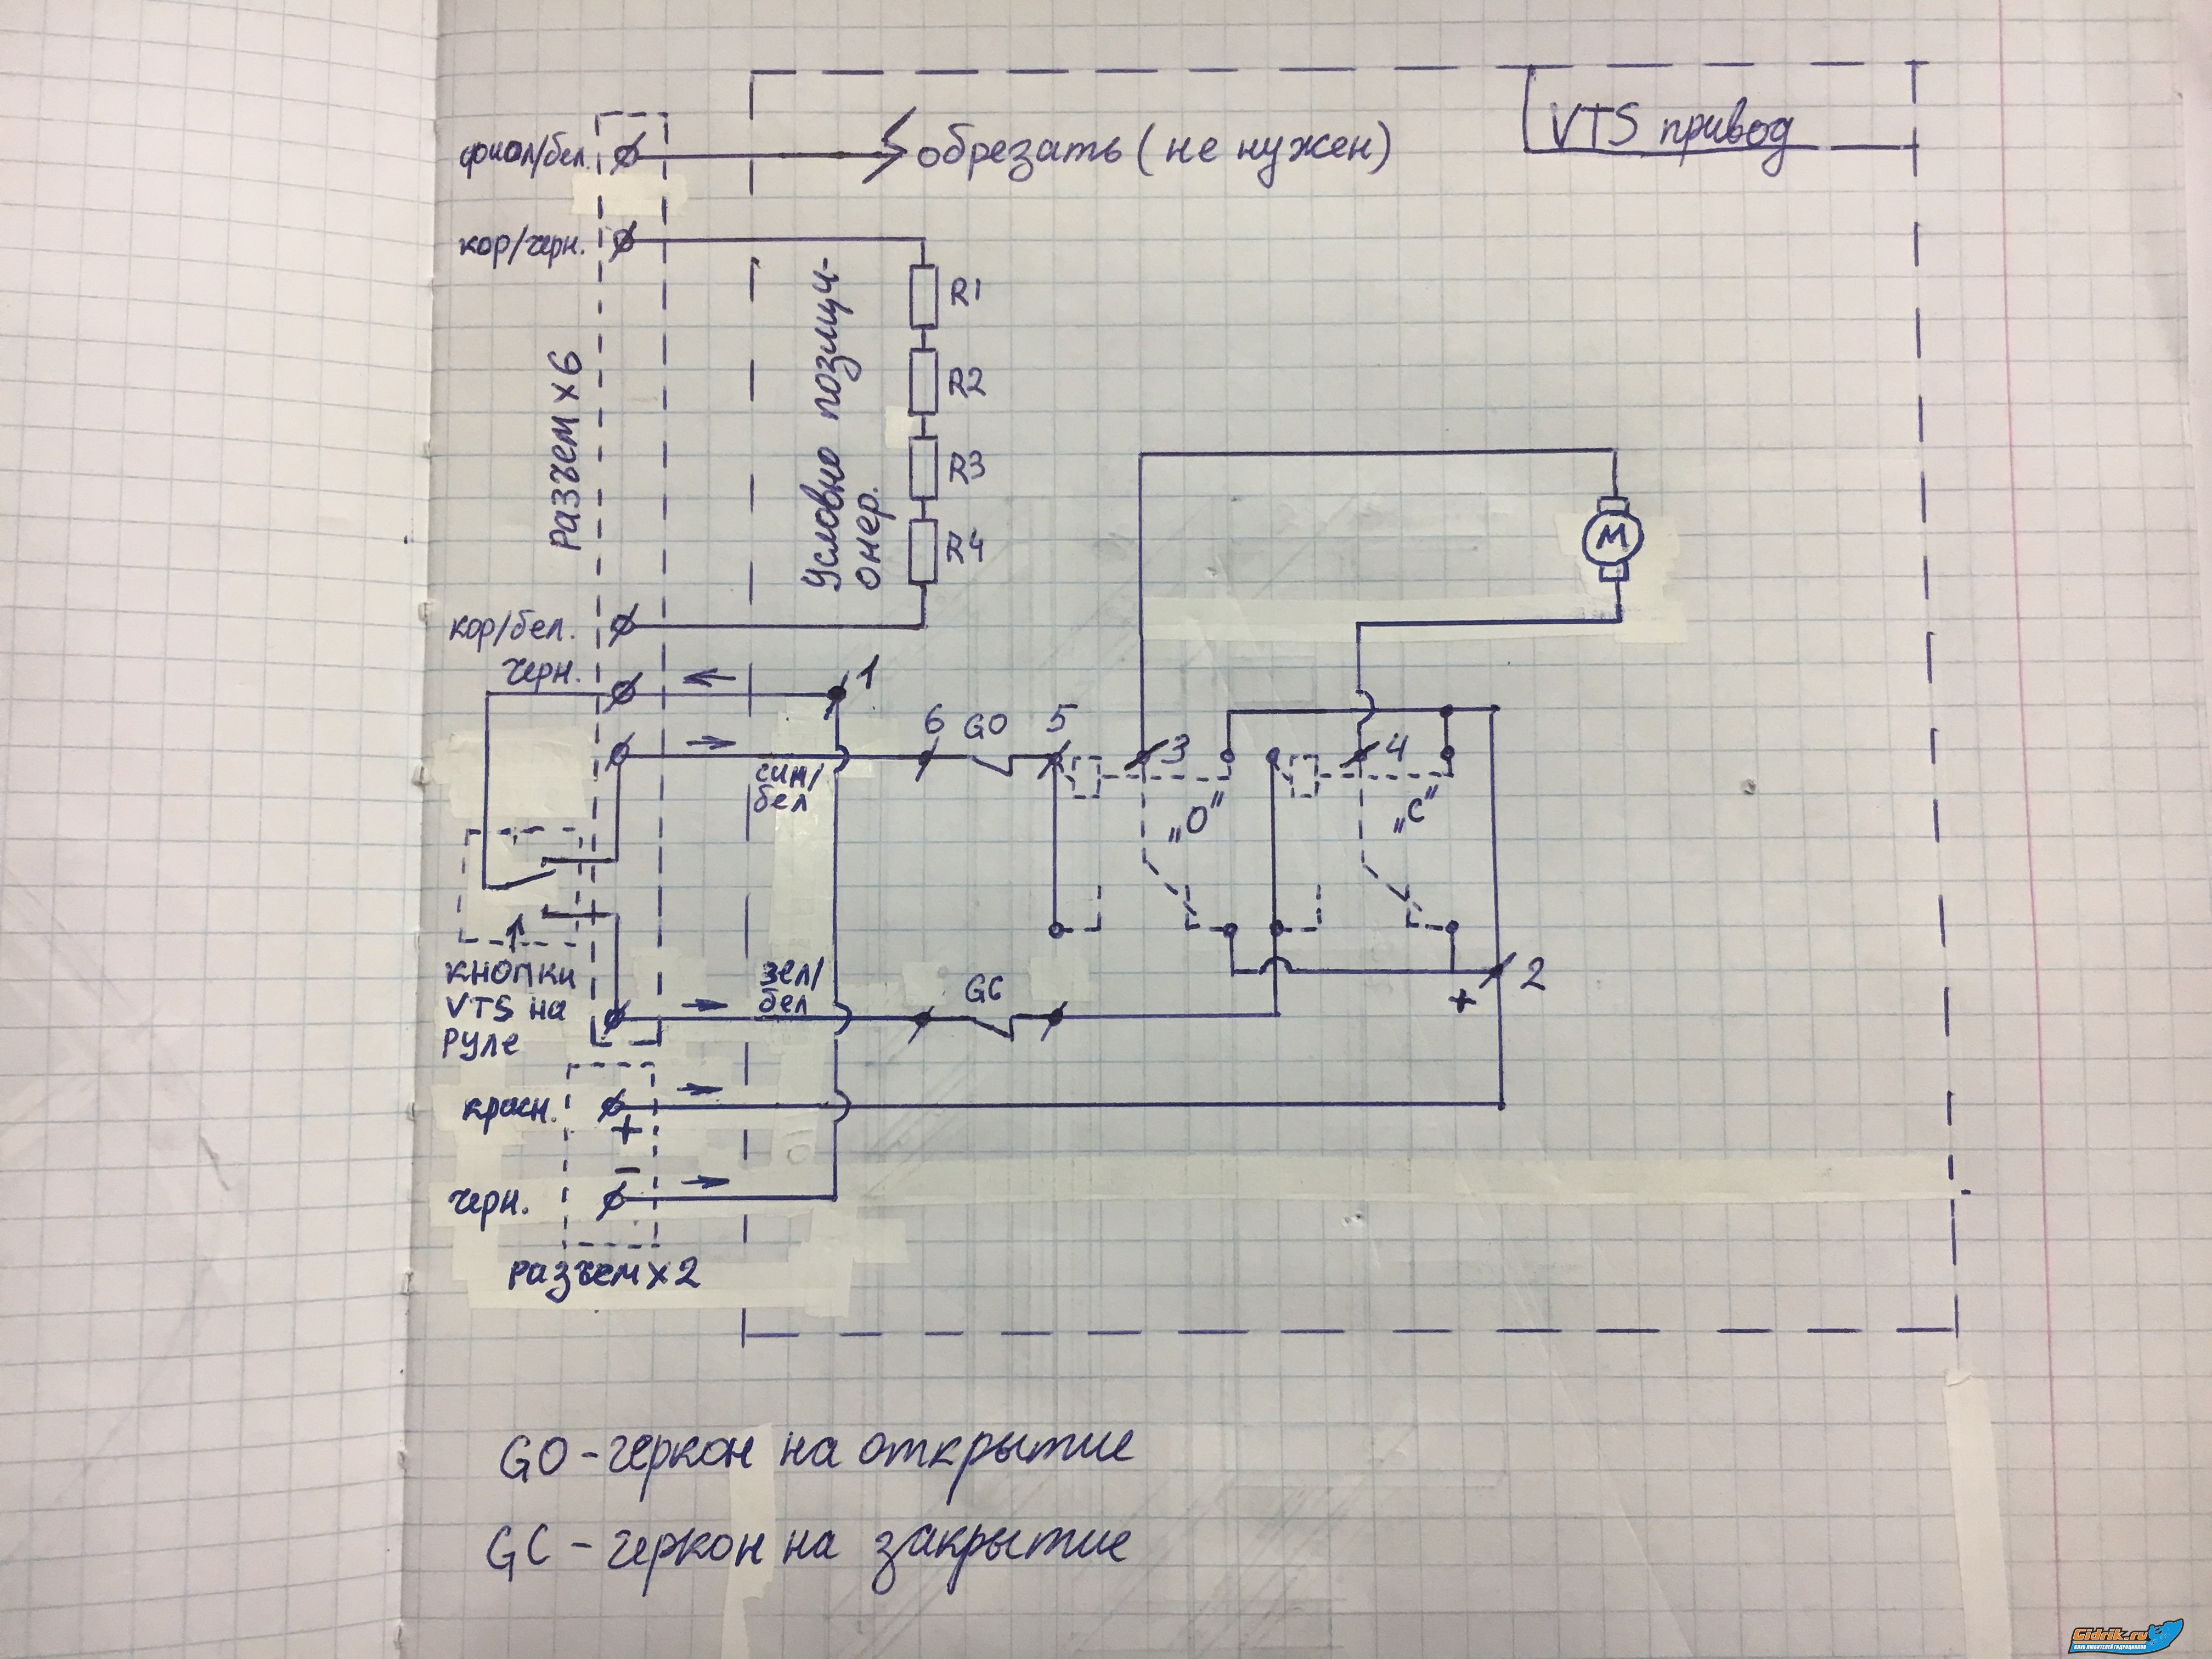 VTS привод
фиол/бел.
обрезать (не нужен)
кор/черн.
R1
R2
R3
R4
Разъем х6
Условно позици-
онер.
М
кор/бел.
черн.
1
6
GO
5
3
4
син/
бел
„О”
„С”
кнопки
VTS на
руле
зел/
бел
GC
2
+
красн.
+
−
черн.
разъем х2
GO - геркон на открытие
GC - геркон на закрытие
Gidrik.ru